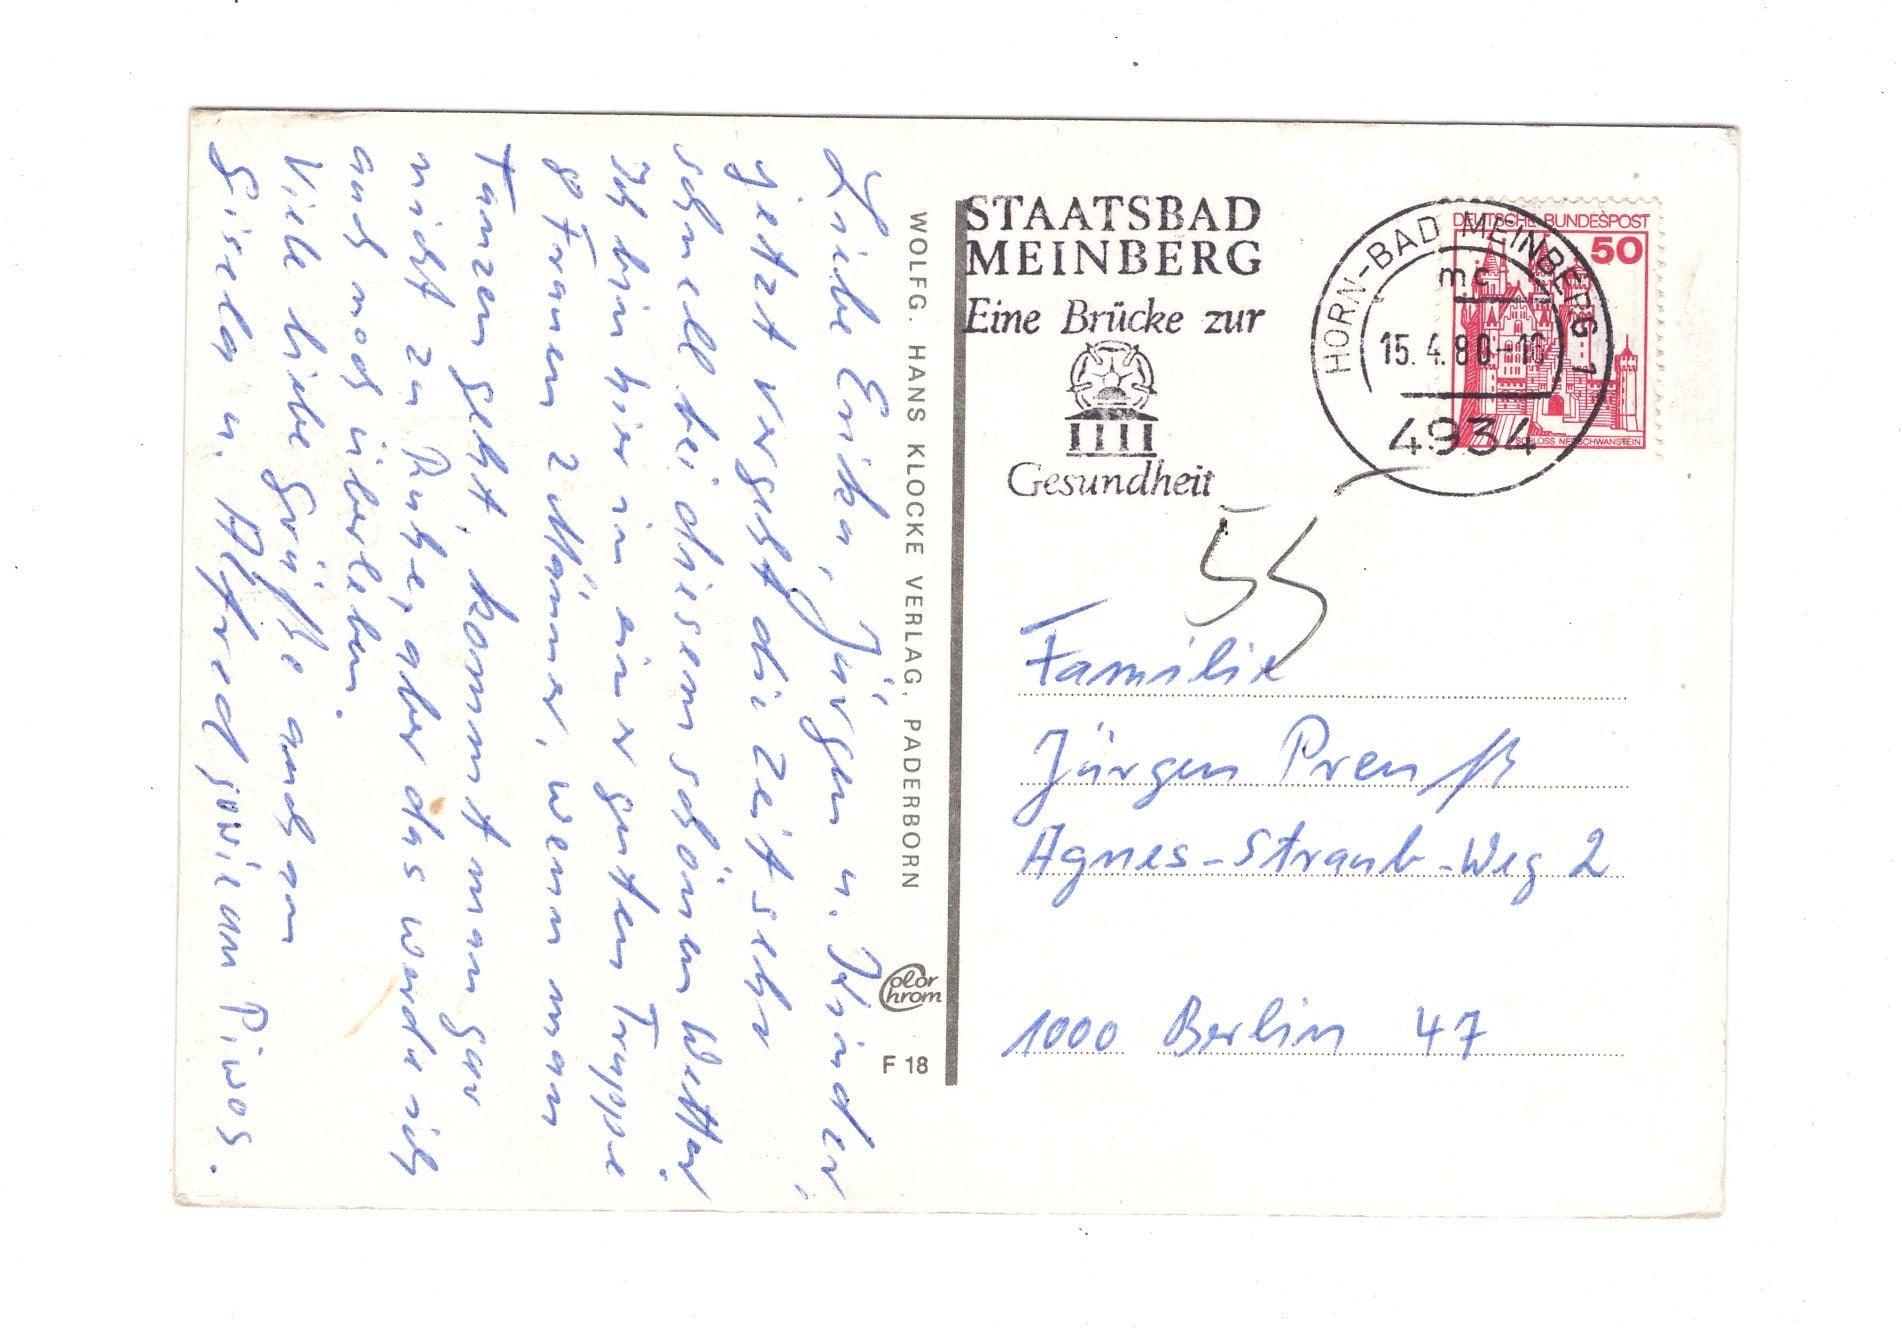 Liebe Erika, Jürgen u. Kinder,
jetzt vergeht die Zeit sehr
schnell bei diesem schönen Wetter.
Ich bin hier in einer guten Truppe
8 Frauen 2 Männer, wenn man
Tanzen geht, kommt man gar
nicht zu Ruhe, aber das werde ich
auch noch überleben.
Viele liebe Grüße auch von
Gisela u. Alfred sowie am Piwos.
WOLFG. HANS KLOCKE VERLAG, PADERBORN
Color Chrom
F 18
STAATSBAD
MEINBERG
Eine Brücke zur
Gesundheit
HORN-BAD MEINBERG 1
mc
15.4.80-16
4934
DEUTSCHE BUNDESPOST
50
SCHLOSS NEUSCHWANSTEIN
55
Familie
Jürgen Preuß
Agnes-Straub-Weg 2
1000 Berlin 47